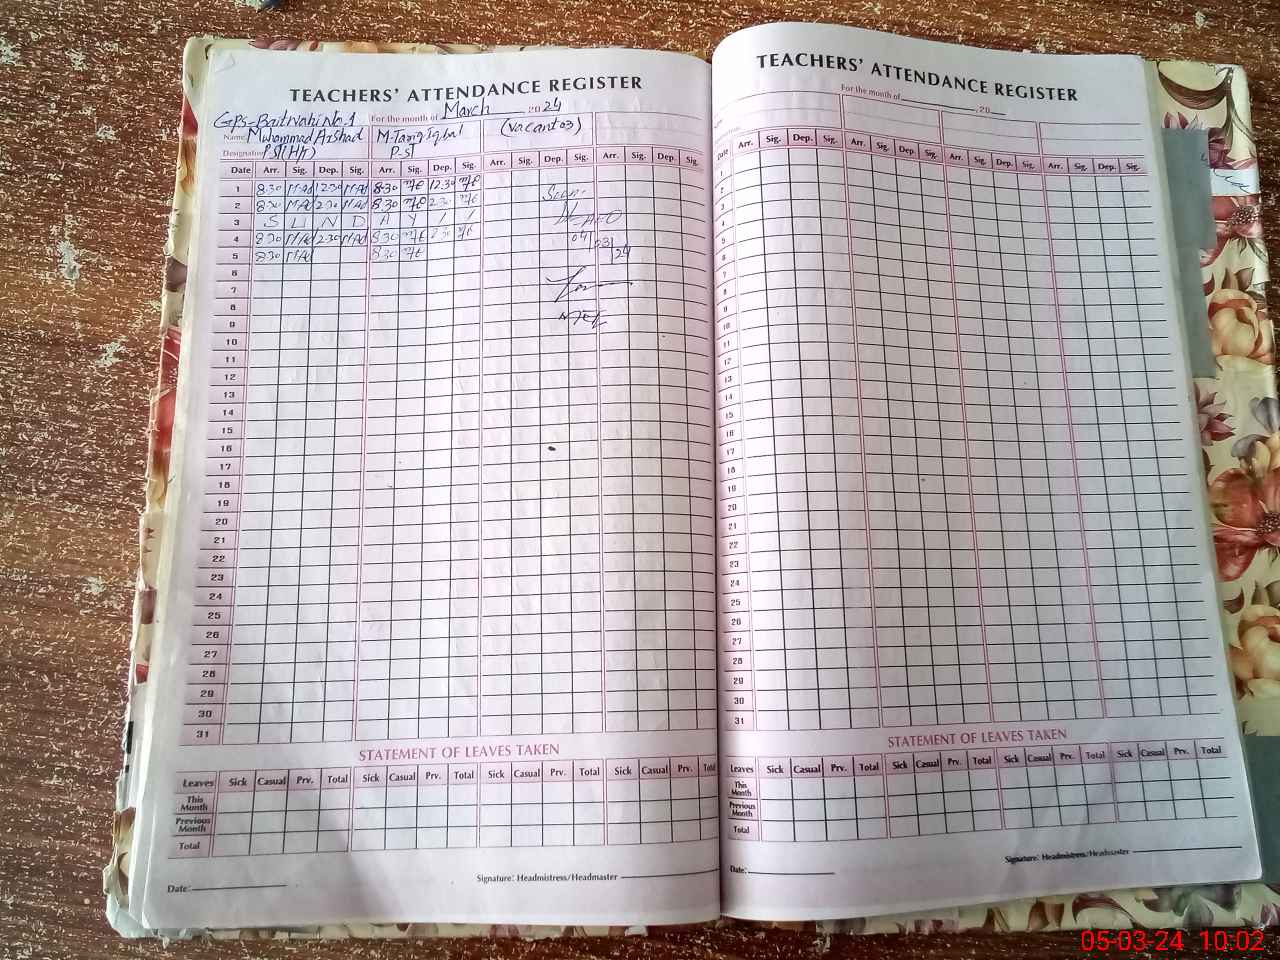 TEACHERS' ATTENDANCE REGISTER
GPS-Basti No.1 For the month of March 2024
Name Muhammad Arshad M. Tariq Iqbal (Vacant 03)
Designation PST(HT) P-sT
Date Arr. Sig. Dep. Sig. Arr. Sig. Dep. Sig. Arr. Sig. Dep. Sig. Arr. Sig. Dep. Sig.
1 8.30 12.30 8.30 12.30
2 8.30 2.30 8.30 2.30
3 S U N D A Y / /
4 8.30 2.30 8.30 2.30
5 8.30 8.30
6
7
8
9
10
11
12
13
14
15
16
17
18
19
20
21
22
23
24
25
26
27
28
29
30
31
Seen
AEO
04/03/24
STATEMENT OF LEAVES TAKEN
Leaves Sick Casual Prv. Total Sick Casual Prv. Total Sick Casual Prv. Total Sick Casual Prv. Total
This Month
Previous Month
Total
Date: Signature: Headmistress/Headmaster
TEACHERS' ATTENDANCE REGISTER
For the month of 20
Date Arr. Sig. Dep. Sig. Arr. Sig. Dep. Sig. Arr. Sig. Dep. Sig. Arr. Sig. Dep. Sig.
1
2
3
4
5
6
7
8
9
10
11
12
13
14
15
16
17
18
19
20
21
22
23
24
25
26
27
28
29
30
31
STATEMENT OF LEAVES TAKEN
Leaves Sick Casual Prv. Total Sick Casual Prv. Total Sick Casual Prv. Total Sick Casual Prv. Total
This Month
Previous Month
Total
Date: Signature: Headmistress/Headmaster
05-03-24 10:02